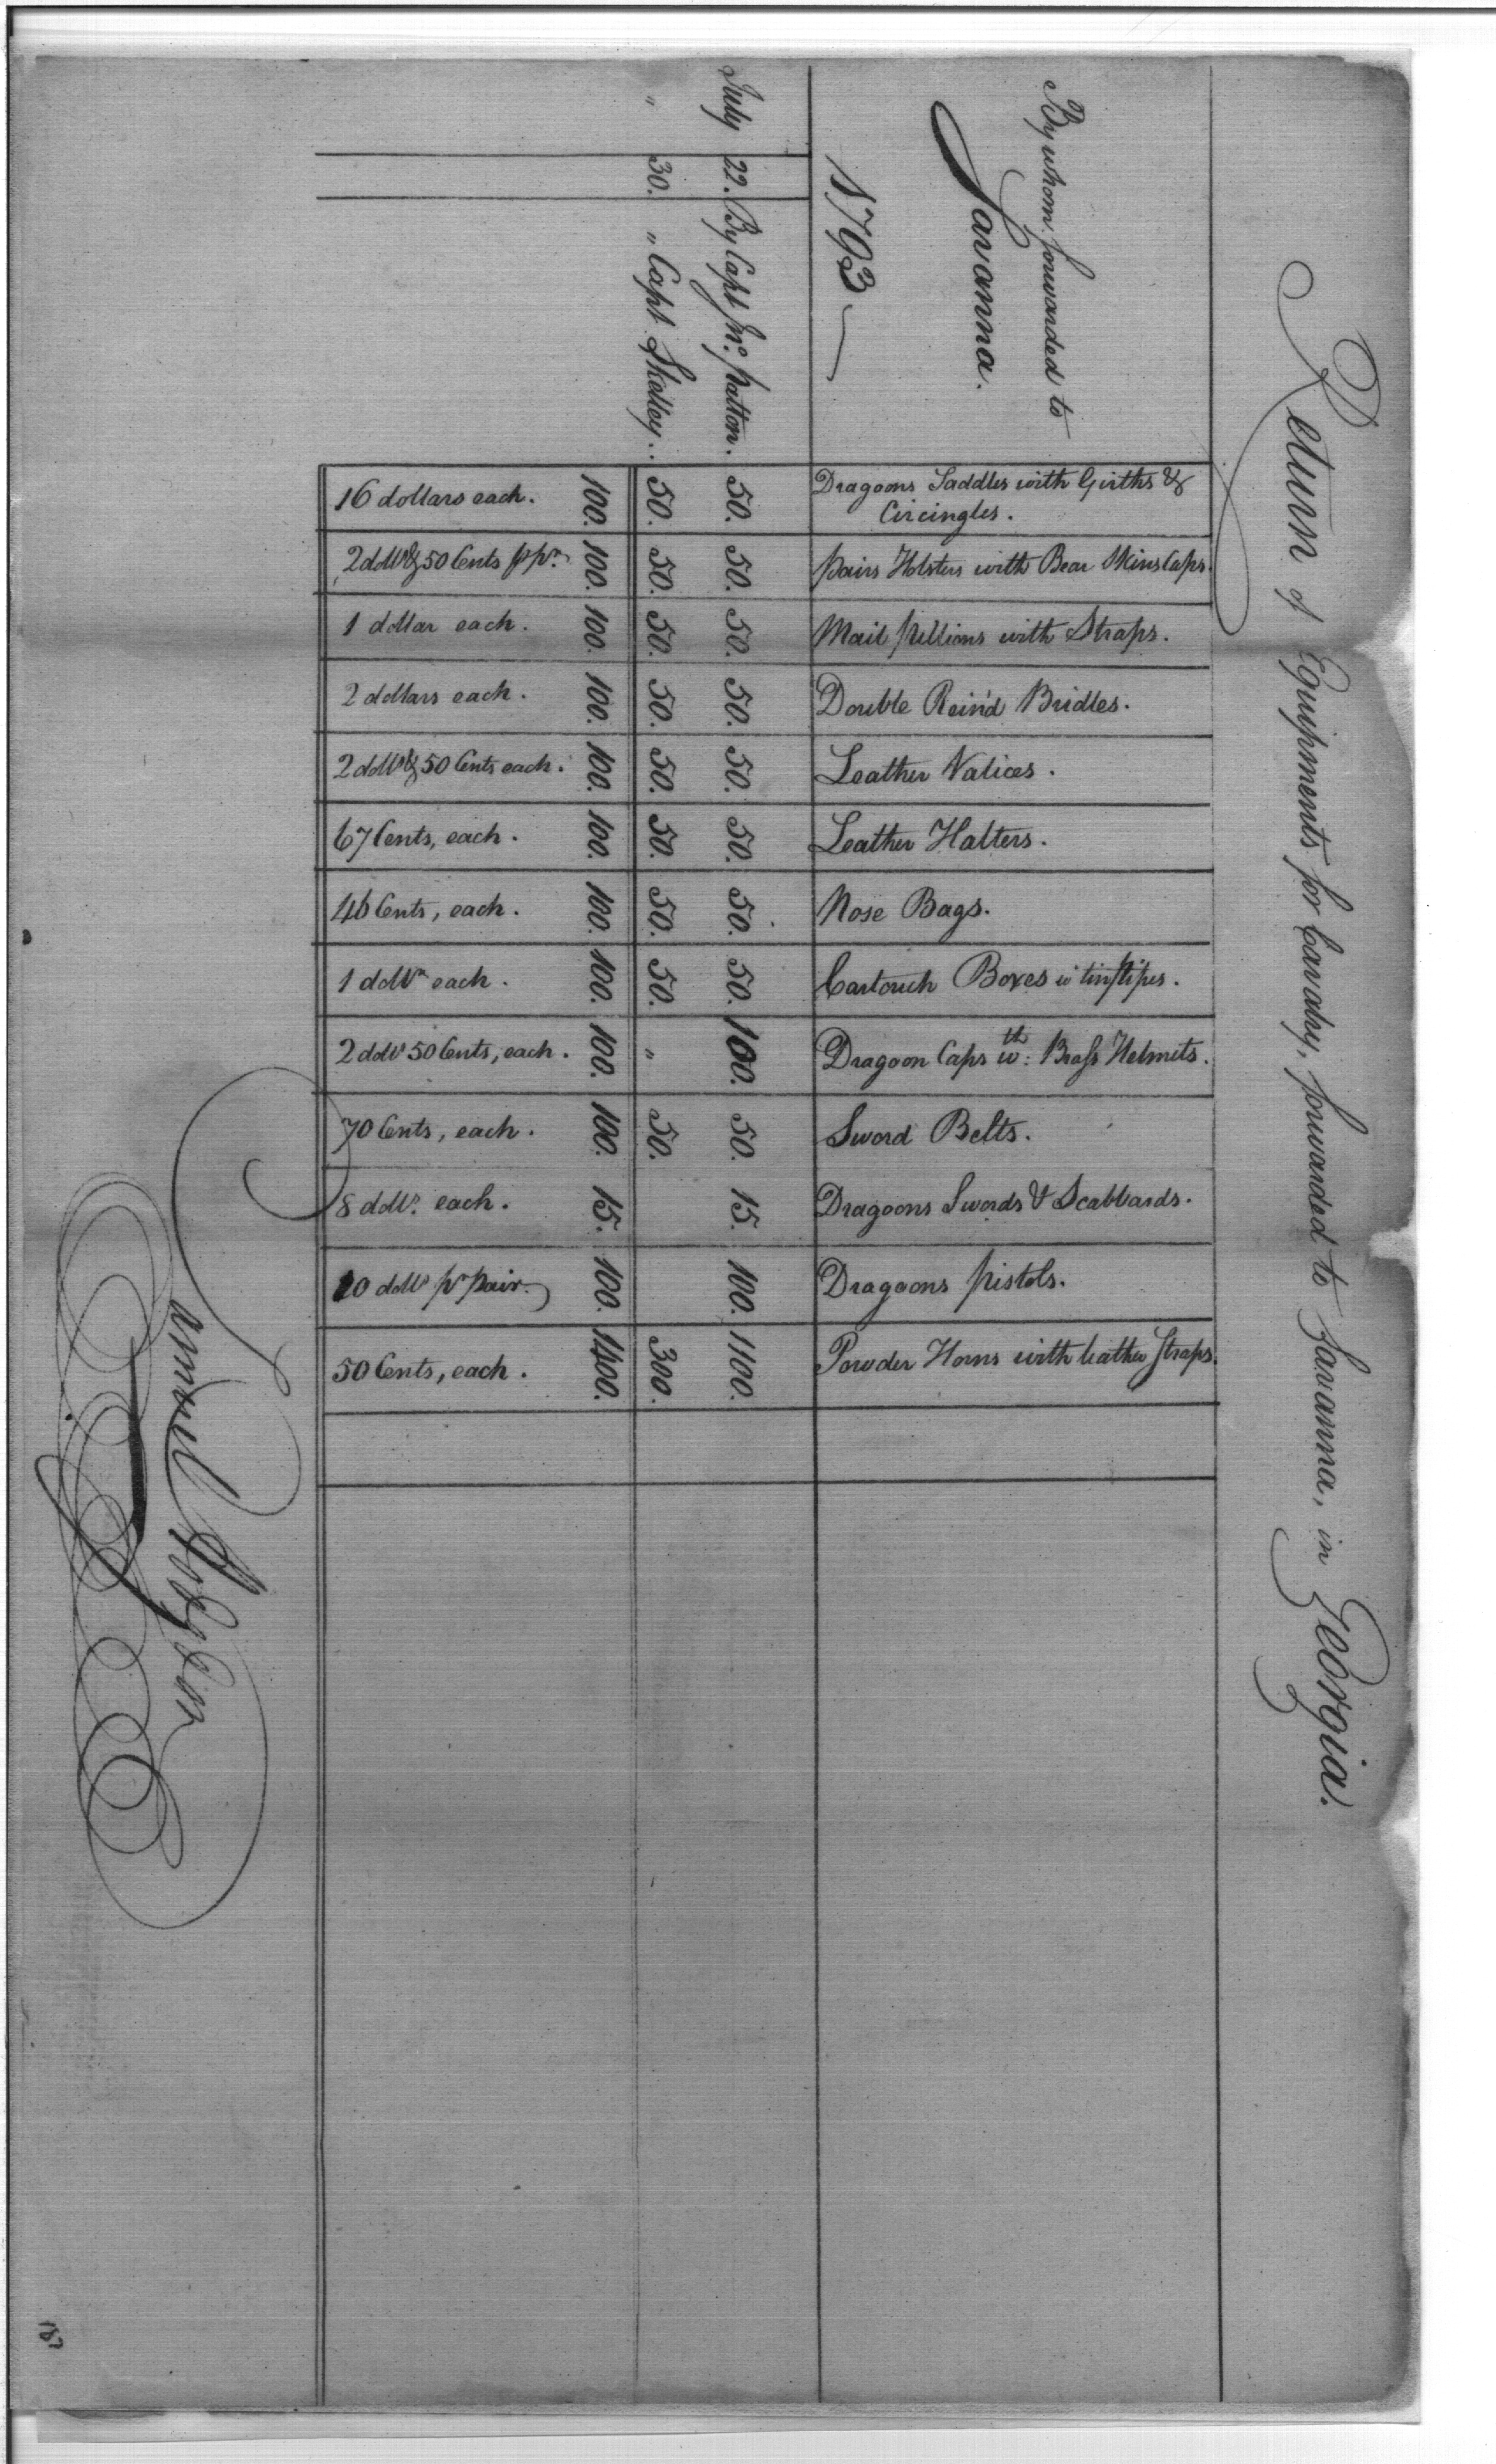 Return of Equipments for Cavalry, forwarded to Savanna, in Georgia.
By whom forwarded to
Savanna.
1793
Dragoons Saddles with Girths &
Circingles.
pairs Holsters with Bear Skins Caps.
Mail pillions with Straps.
Double Rein'd Bridles.
Leather Valices.
Leather Halters.
Nose Bags.
Cartouch Boxes w tin pipes.
Dragoon Caps wth: Brass Helmets.
Sword Belts.
Dragoons Swords & Scabbards.
Dragoons pistols.
Powder Horns with leather Straps.
July 22. By Capt Jno. Patton. 50. 50. 50. 50. 50. 50. 50. 50. 100. 50. 15. 100. 1100.
" 30. " Capt Skolley. 50. 50. 50. 50. 50. 50. 50. 50. " 50. 300.
100. 100. 100. 100. 100. 100. 100. 100. 100. 100. 15. 100. 1400.
16 dollars each.
2 dolls & 50 Cents p pr.
1 dollar each.
2 dollars each.
2 dolls & 50 Cents each.
67 Cents, each.
46 Cents, each.
1 dollr each.
2 dolls 50 Cents, each.
70 Cents, each.
8 dolls. each.
10 dolls pr pair.
50 Cents, each.
Samuel Hodgdon